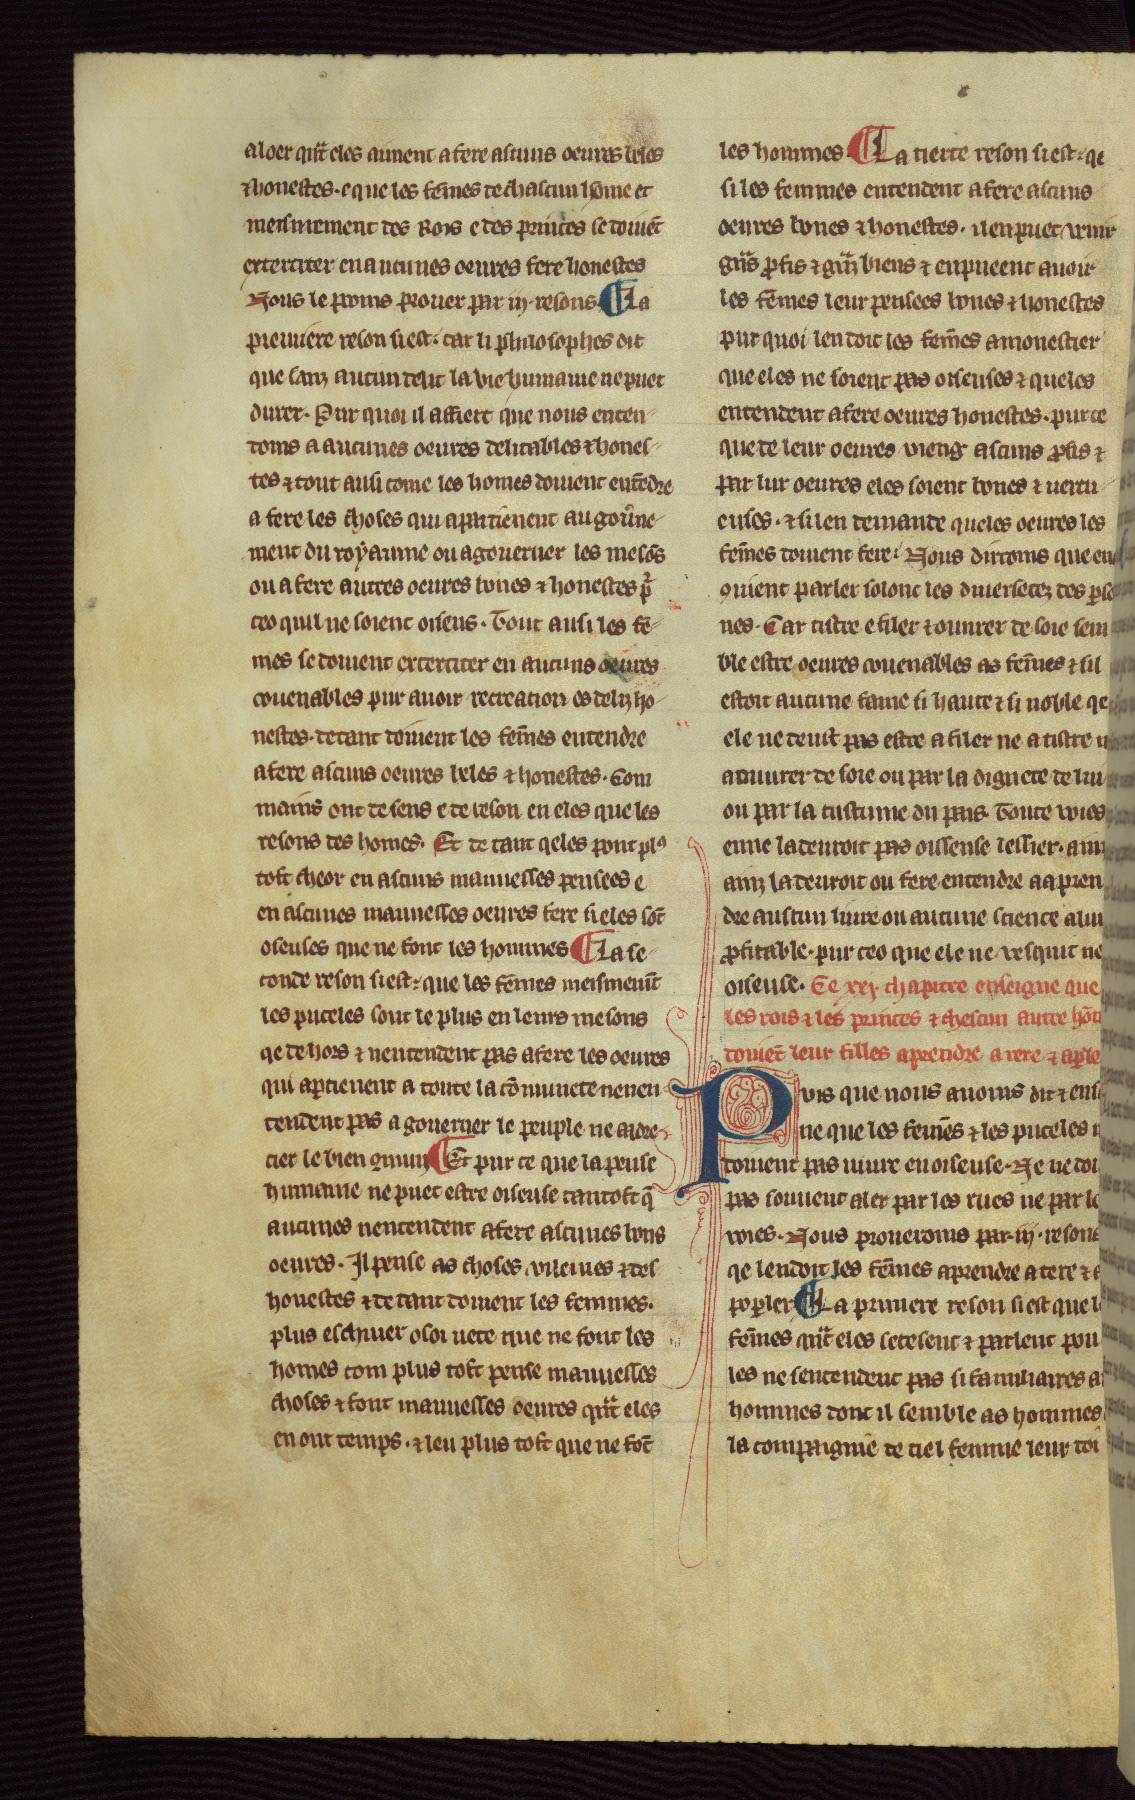 a loer qñt eles aiment a fere ascuns oeures beles
⁊ honestes. e que les fēmes de chascun home et
meismement des Rois e des princes se doiuēt
excerciter en aucunes oeures fere honestes
Nous le poms prouer par iij. resons. La
premiere reson si est. car li philosophes dit
que sanz aucun delit la vie humaine ne puet
durer. Pur quoi il affiert que nous enten-
doms a aucunes oeures delitables ⁊ hones-
tes ⁊ tout ausi come les homes doiuent entēdre
a fere les choses qui apartienent au gouͥne-
ment du royaume ou a gouerner les mesōs
ou a fere autres oeures bones ⁊ honestes pͬ
ceo quil ne soient oiseus. Tout ausi les fē-
mes se doiuent excerciter en aucuns oeures
couenables pur auoir recreation es deliz ho-
nestes. de tant doiuent les femēs entendre
a fere ascuns oeures beles ⁊ honestes. Com
mains ont de sens e de reson en eles que les
resons des homes. Et de tant qeles pont plꝰ
tost cheor en ascuns mauuesses pensees e
en ascunes mauuesses oeures fere si eles sōt
oseuses que ne font les hommes La se-
conde reson si est. que les fēmes meismemēt
les puceles sont le plus en leurs mesons
qe dehors ⁊ nentendent pas a fere les oeures
qui aptienent a toute la cōmunete nenen
tendent pas a gouerner le peuple ne adre-
cier le bien ꝯmun Et pur ce que la pense
humaine ne puet estre oiseuse tantost q̄
aucunes nentendent a fere ascunes bons
oeures. Il pense as choses vileines ⁊ des
honestes ⁊ de tant doiuent les femmes.
plus eschiuer osoiuete que ne font les
homes com plus tost pense mauuesses
choses ⁊ font mauuesses oeures qñt eles
en ont temps. ⁊ leu plus tost que ne fōt
les hommes. La tierce reson si est. qe
si les femmes entendent a fere ascuns
oeures bones ⁊ honestes. il en puet venir
gñs ꝓfis ⁊ gñz biens ⁊ en pueent auoir
les fēmes leur pensees bones ⁊ honestes
pur quoi len doit les femēs amonestier
que eles ne soient pas oiseuses ⁊ queles
entendent a fere oeures honestes. pur ce
que de leur oeures vieng ascuns ꝓfis ⁊
par lur oeures eles soient bones ⁊ uertu
euses. ⁊ si len demande queles oeures les
fēmes doiuent fere. Nous diroms que en
ꝯuient parler solonc les diuersetez des ꝑso
nes. Car tistre e filer ⁊ ouurer de soie sem
ble estre oeures couenables as femēs ⁊ sil
estoit aucune fame si haute ⁊ si noble qe
ele ne deust pas estre a filer ne a tistre n
a ouurer de soie ou par la dignete de lui
ou par la custume du pais. Toute voies
enne la deuroit pas oissense lessier. ainz
ainz la deuroit ou fere entendre a apren
dre auscun liure ou aucune science a lui
ꝓfitable. pur ceo que ele ne vesquit ne
oiseuse. Ce xxj. chapitre enseigne que
les rois ⁊ les princes ⁊ chescun autre hōe
doiuēt leur filles aprendre a tere ⁊ a ple
Puis que nous auoms dit ⁊ ensi
ne que les femēs ⁊ les puceles n
doient pas uiure en oiseuse. Ne ne doi
pas souuent aler par les rues ne par le
voies. Nous proueroms par iij. resons
qe len doit les femēs aprendre a tere ⁊ a
po ꝑler La primere reson si est que l
femēs qñt eles se tesent ⁊ parlent pou
les ne sentendent pas si familiaires a
hommes dont il semble as hommes
la compaignie de ciel femme leur doi